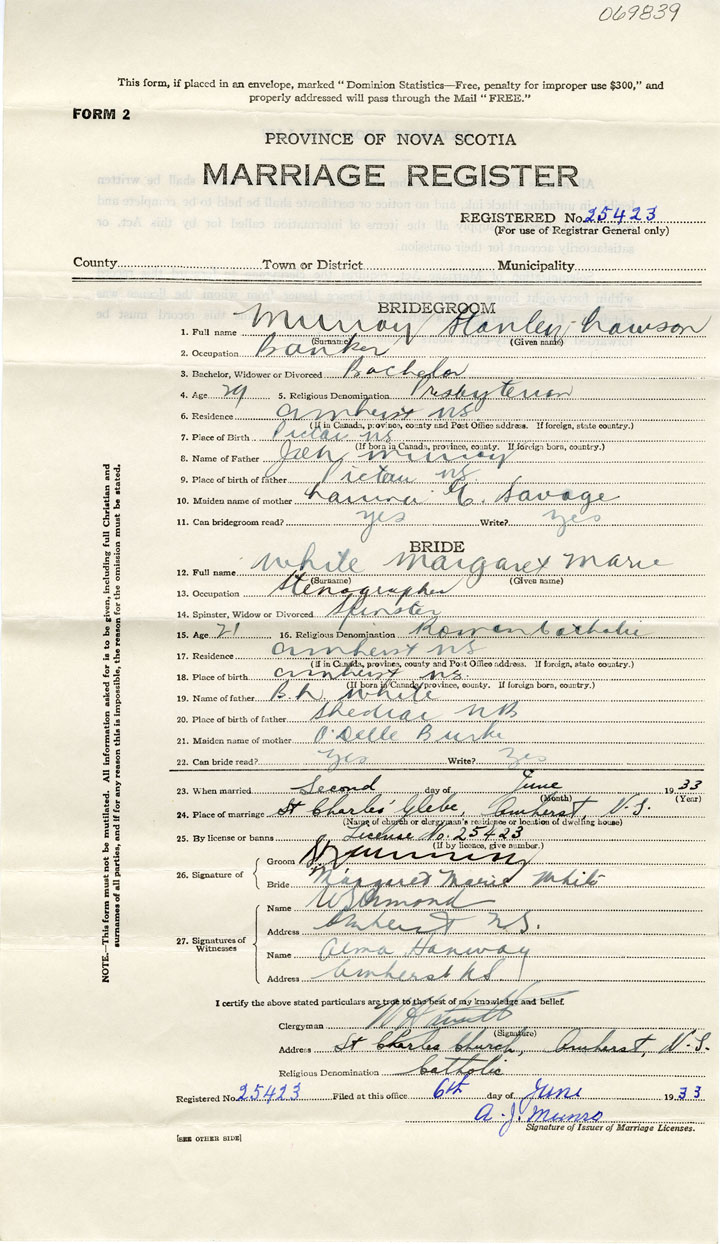 069839
This form, if placed in an envelope, marked "Dominion Statistics—Free, penalty for improper use $300," and
properly addressed will pass through the Mail "FREE."
FORM 2
PROVINCE OF NOVA SCOTIA
MARRIAGE REGISTER
REGISTERED No. 25423
(For use of Registrar General only)
County Town or District Municipality
BRIDEGROOM
1. Full name Murray Stanley Lawson
(Surname) (Given name)
2. Occupation Banker
3. Bachelor, Widower or Divorced Bachelor
4. Age 29 5. Religious Denomination Presbyterian
6. Residence Amherst NS
(If in Canada, province, county and Post Office address. If foreign, state country.)
7. Place of Birth Pictou NS
(If born in Canada, province, county. If foreign born, country.)
8. Name of Father Murray
9. Place of birth of father Pictou NS
10. Maiden name of mother G. Savage
11. Can bridegroom read? yes Write? yes
BRIDE
12. Full name White Margaret Marie
(Surname) (Given name)
13. Occupation Stenographer
14. Spinster, Widow or Divorced Spinster
15. Age 21 16. Religious Denomination Roman Catholic
17. Residence Amherst NS
(If in Canada, province, county and Post Office address. If foreign, state country.)
18. Place of birth Amherst NS.
(If born in Canada province, county. If foreign born, country.)
19. Name of father B.L. White
20. Place of birth of father Shediac NB
21. Maiden name of mother O'Delle Burke
22. Can bride read? Yes Write? Yes
23. When married Second day of June 1933
(Month) (Year)
24. Place of marriage St Charles' Glebe, Amherst, N.S.
(Name of church or clergyman's residence or location of dwelling house)
25. By license or banns License No. 25423
(If by licence, give number.)
26. Signature of Groom Murray
Bride Margaret Marie White
27. Signatures of Witnesses
Name
Address Amherst N.S.
Name Alma Hanway
Address Amherst NS
I certify the above stated particulars are true to the best of my knowledge and belief.
Clergyman
(Signature)
Address St Charles Church, Amherst, N.S.
Religious Denomination Catholic
Registered No. 25423 Filed at this office 6th day of June 1933
A. J. Munro
Signature of Issuer of Marriage Licenses.
[SEE OTHER SIDE]
NOTE.—This form must not be mutilated. All information asked for is to be given, including full Christian and
surnames of all parties, and if for any reason this is impossible, the reason for the omission must be stated.